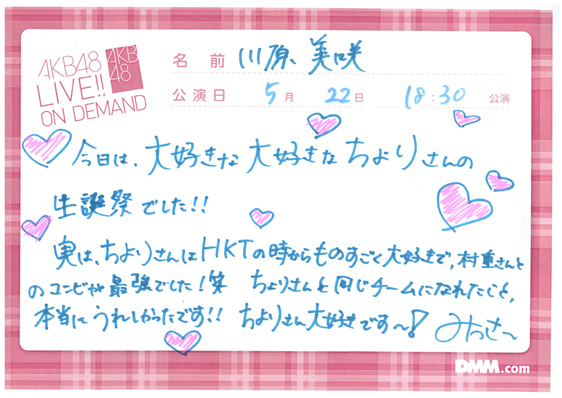 AKB48
LIVE!!
ON DEMAND
AKB
48
名 前 川原 美咲
公演日 5月 22日 18:30 公演
今日は、大好きな大好きなちよりさんの
生誕祭でした!!
実は、ちよりさんはHKTの時からものすごく大好きで、村重さんと
のコンビが最強でした!笑 ちよりさんと同じチームになれたこと、
本当にうれしかったです!! ちよりさん大好きです〜!
みさき〜
DMM.com